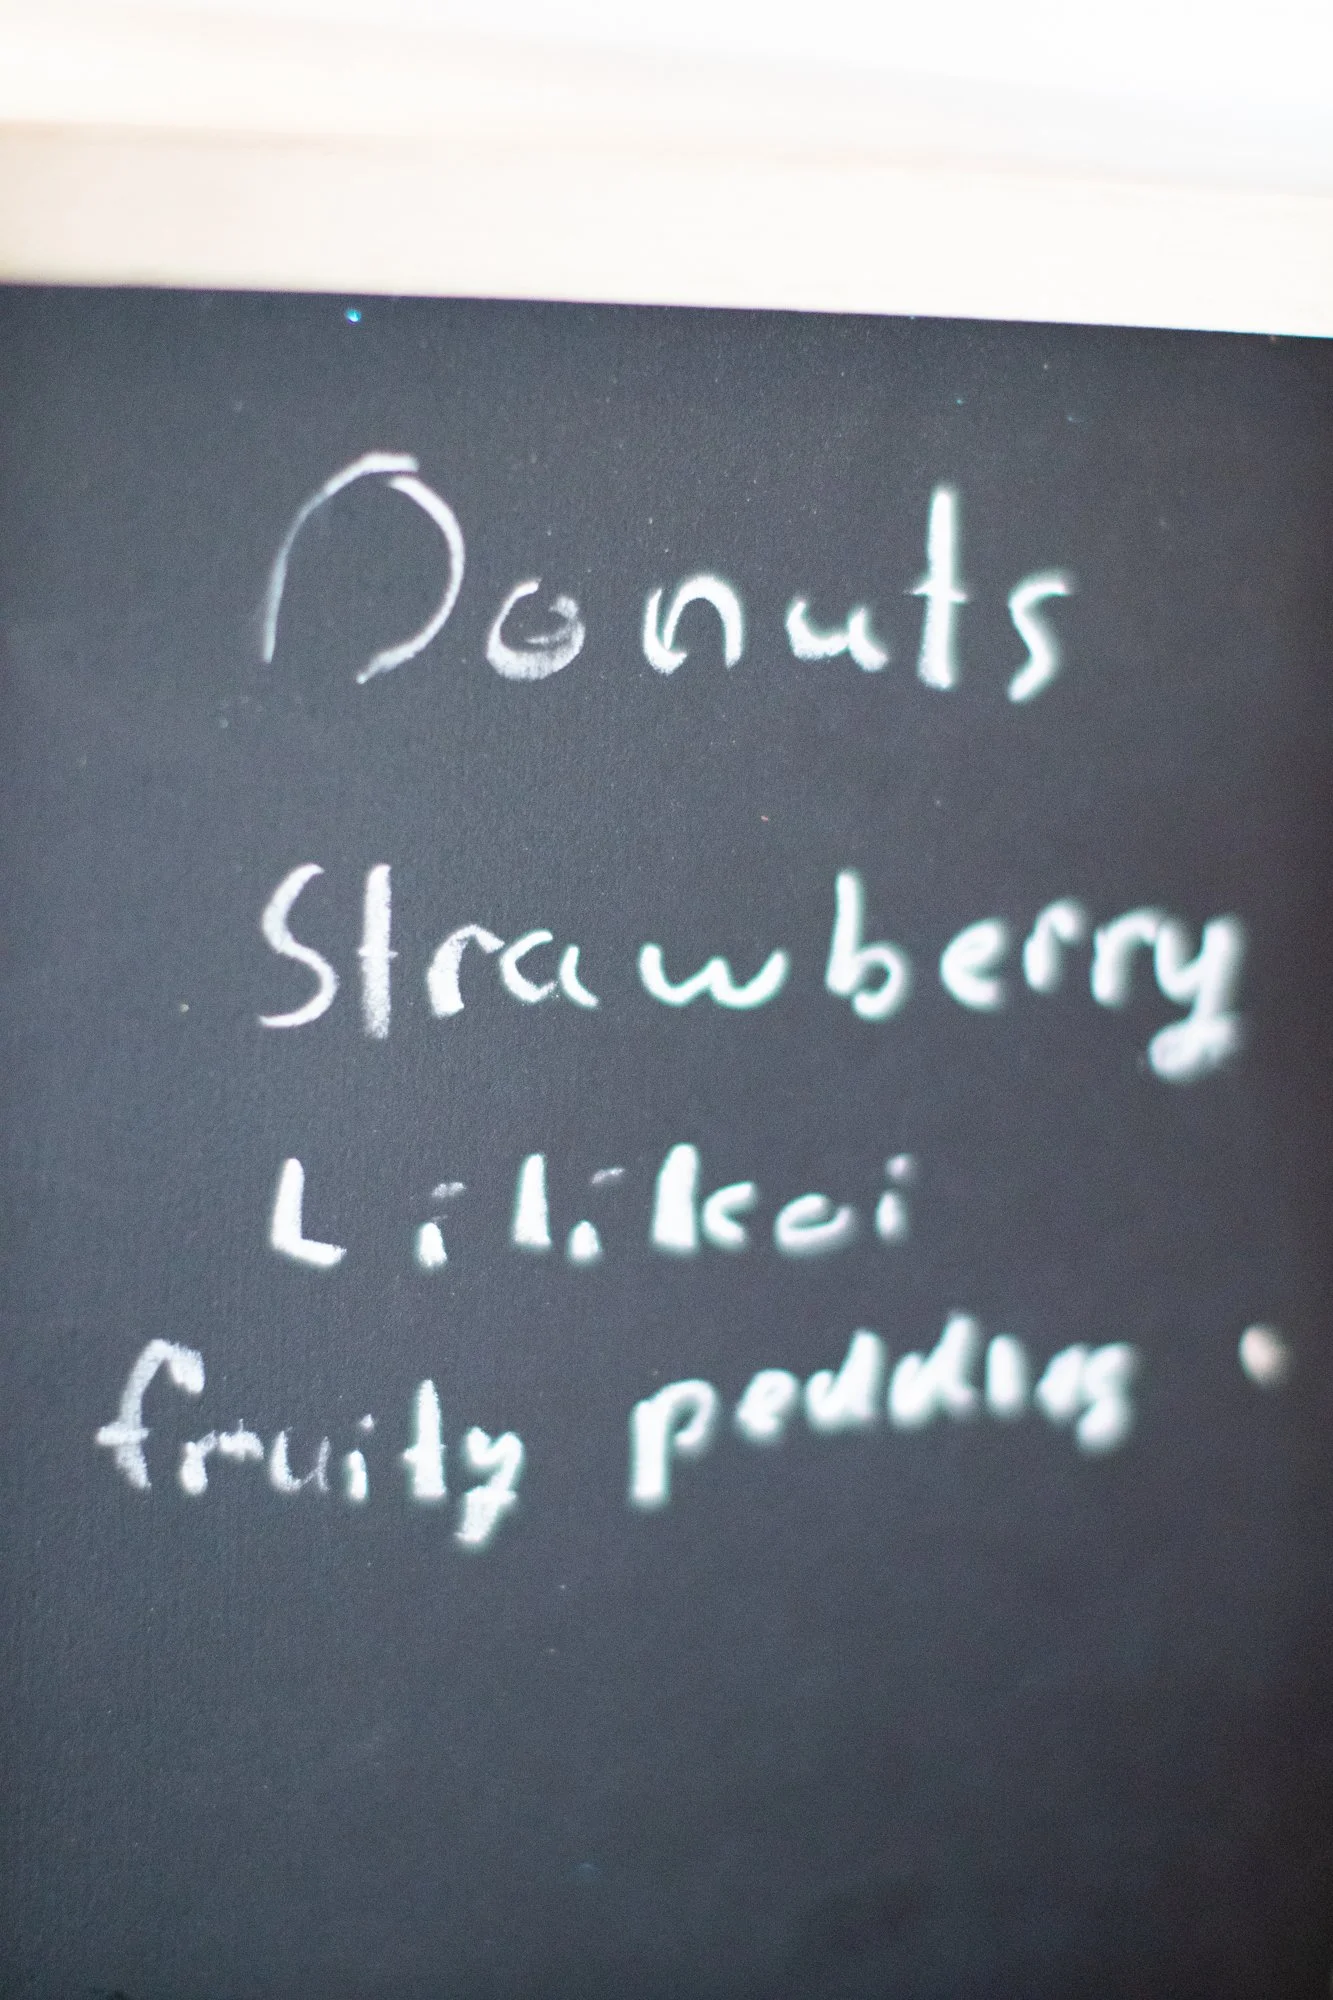 Donuts
Strawberry
Lilikoi
fruity pedding